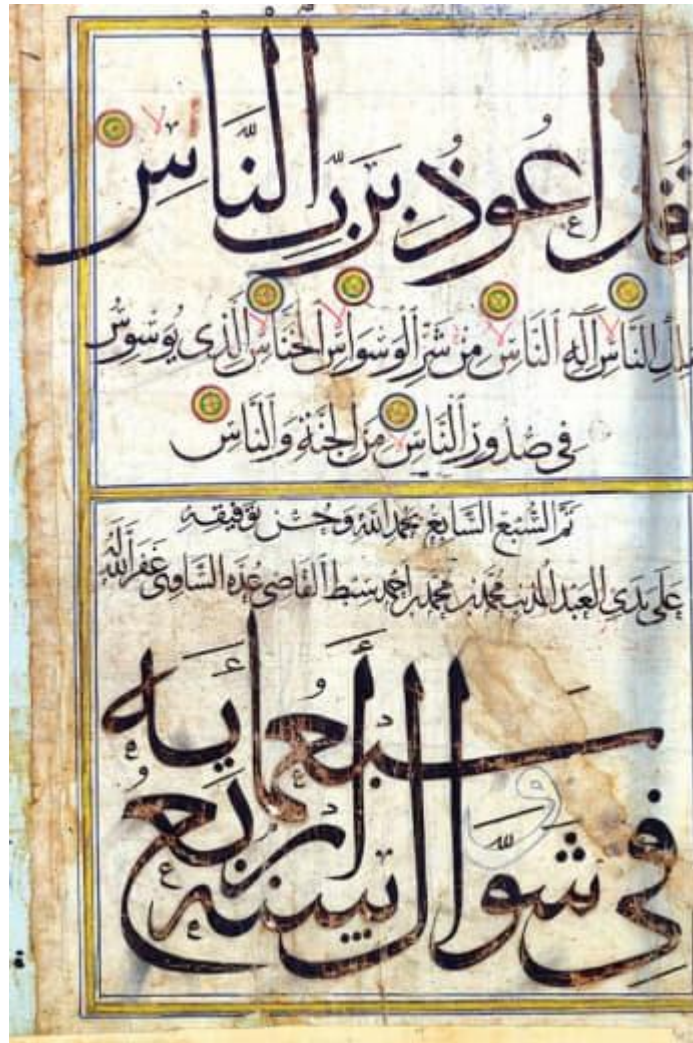 قُل اَعُوذُ بِرَبِّ النَّاسِ
مَلِكِ النَّاسِ اِلٰهِ النَّاسِ مِنْ شَرِّ الْوَسْوَاسِ الْخَنَّاسِ الَّذِى يُوَسْوِسُ
فِى صُدُورِ النَّاسِ مِنَ الْجِنَّةِ وَالنَّاسِ
تم السُّبع السَّابع بحمد الله وحسن توفيقه
على يدى العبد المذنب محمد بن محمد بن احمد سبط القاضى السَّاوى غفر الله له
فِى شَوَّال سنه اربع
و
سبعمائه